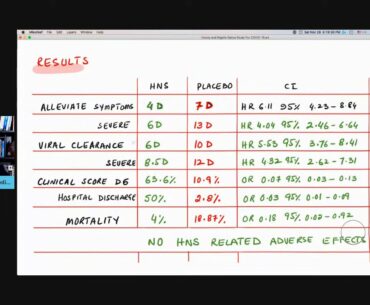 RESULTS
HNS PLACEBO CI
ALLEVIATE SYMPTOMS 4 D 7 D HR 6.11 95% 4.23-8.84
SEVERE 6D 13 D HR 4.04 95% 2.46-6.64
VIRAL CLEARANCE 6D 10 D HR 5.53 95% 3.76-8.41
SEVERE 8.5D 12 D HR 4.32 95% 2.62-7.31
CLINICAL SCORE D6 63.6% 10.9% OR 0.07 95% 0.03-0.13
HOSPITAL DISCHARGE 50% 2.8% OR 0.03 95% 0.01-0.09
MORTALITY 4% 18.87% OR 0.18 95% 0.02-0.92
NO HNS RELATED ADVERSE EFFECTS